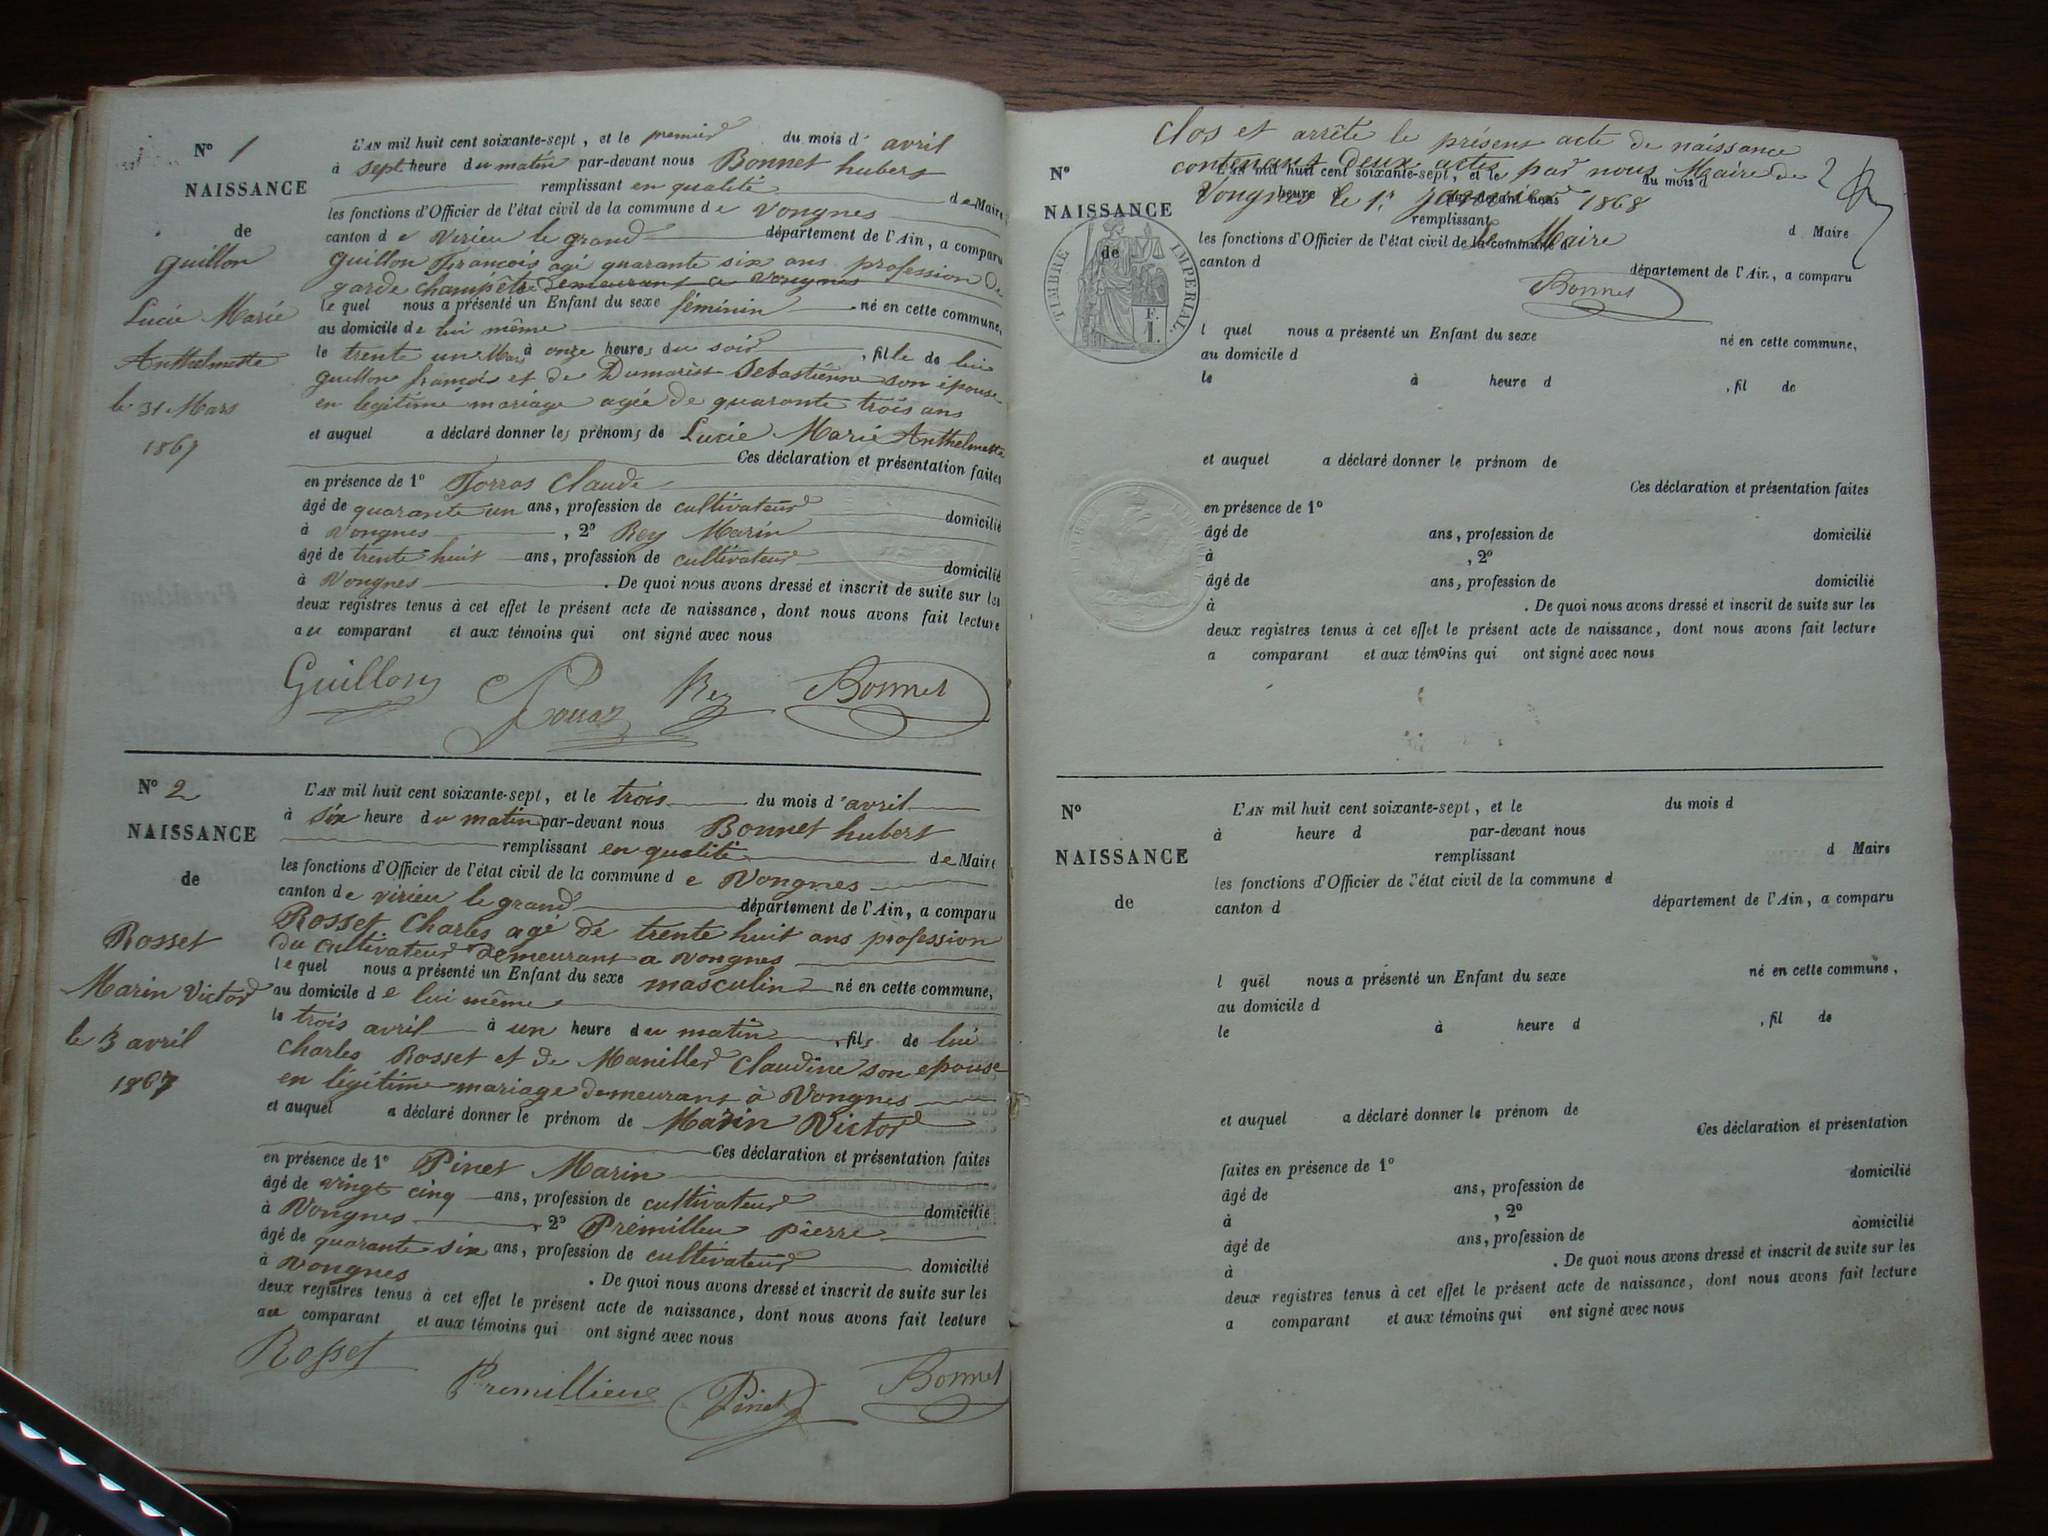 N° 1
NAISSANCE
de
Guillon
Lucie Marie
Anthelmette
le 31 Mars
1867
L'AN mil huit cent soixante-sept, et le premier du mois d' avril
à sept heure du matin par-devant nous Bonnet hubert
remplissant en qualité de Maire
les fonctions d'Officier de l'état civil de la commune de Vongnes
canton de Virieu le grand département de l'Ain, a comparu
Guillon François agé quarante six ans profession de
garde champêtre demeurant a Vongnes
le quel nous a présenté un Enfant du sexe féminin né en cette commune,
au domicile de lui même
le trente un Mars à onze heures du soir, fille de lui
Guillon françois et de Sebastienne son épouse
en legitime mariage agée de quarante trois ans
et auquel a déclaré donner les prénoms de Lucie Marie Anthelmette
Ces déclaration et présentation faites
en présence de 1° Claude
âgé de quarante un ans, profession de cultivateur domicilié
à Vongnes, 2° Rey Marin
âgé de trente huit ans, profession de cultivateur domicilié
à Vongnes. De quoi nous avons dressé et inscrit de suite sur les
deux registres tenus à cet effet le présent acte de naissance, dont nous avons fait lecture
au comparant et aux témoins qui ont signé avec nous
Guillon Rey Bonnet
N° 2
NAISSANCE
de
Rosset
Marin Victor
le 3 avril
1867
L'AN mil huit cent soixante-sept, et le trois du mois d'avril
à six heure du matin par-devant nous Bonnet hubert
remplissant en qualité de Maire
les fonctions d'Officier de l'état civil de la commune de Vongnes
canton de virieu le grand département de l'Ain, a comparu
Rosset Charles agé de trente huit ans profession
du cultivateur demeurant a Vongnes
le quel nous a présenté un Enfant du sexe masculin né en cette commune,
au domicile de lui même
le trois avril à un heure du matin, fils de lui
Charles Rosset et de Claudine son epouse
en légitime mariage demeurant à Vongnes
et auquel a déclaré donner le prénom de Marin Victor
Ces déclaration et présentation faites
en présence de 1° Pinet Marin
âgé de vingt cinq ans, profession de cultivateur domicilié
à Vongnes, 2° Prémillieu pierre
âgé de quarante six ans, profession de cultivateur domicilié
à Vongnes. De quoi nous avons dressé et inscrit de suite sur les
deux registres tenus à cet effet le présent acte de naissance, dont nous avons fait lecture
au comparant et aux témoins qui ont signé avec nous
Rosset Premillieu Pinet Bonnet
Clos et arrêté le présent acte de naissance
contenant deux actes par nous Maire de
Vongnes le 1er janvier 1868
Le Maire
Bonnet
2
N°
NAISSANCE
de
TIMBRE IMPERIAL
F.
1.
L'AN mil huit cent soixante-sept, et le du mois d
heure par-devant nous
remplissant d Maire
les fonctions d'Officier de l'état civil de la commune d
canton d département de l'Ain, a comparu
l quel nous a présenté un Enfant du sexe né en cette commune,
au domicile d
le à heure d, fil de
et auquel a déclaré donner le prénom de
Ces déclaration et présentation faites
en présence de 1°
âgé de ans, profession de domicilié
à, 2°
âgé de ans, profession de domicilié
à. De quoi nous avons dressé et inscrit de suite sur les
deux registres tenus à cet effet le présent acte de naissance, dont nous avons fait lecture
a comparant et aux témoins qui ont signé avec nous
N°
NAISSANCE
de
L'AN mil huit cent soixante-sept, et le du mois d
à heure d par-devant nous
remplissant d Maire
les fonctions d'Officier de l'état civil de la commune d
canton d département de l'Ain, a comparu
l quel nous a présenté un Enfant du sexe né en cette commune,
au domicile d
le à heure d, fil de
et auquel a déclaré donner le prénom de
Ces déclaration et présentation
faites en présence de 1° domicilié
âgé de ans, profession de
à, 2° domicilié
âgé de ans, profession de
à. De quoi nous avons dressé et inscrit de suite sur les
deux registres tenus à cet effet le présent acte de naissance, dont nous avons fait lecture
a comparant et aux témoins qui ont signé avec nous